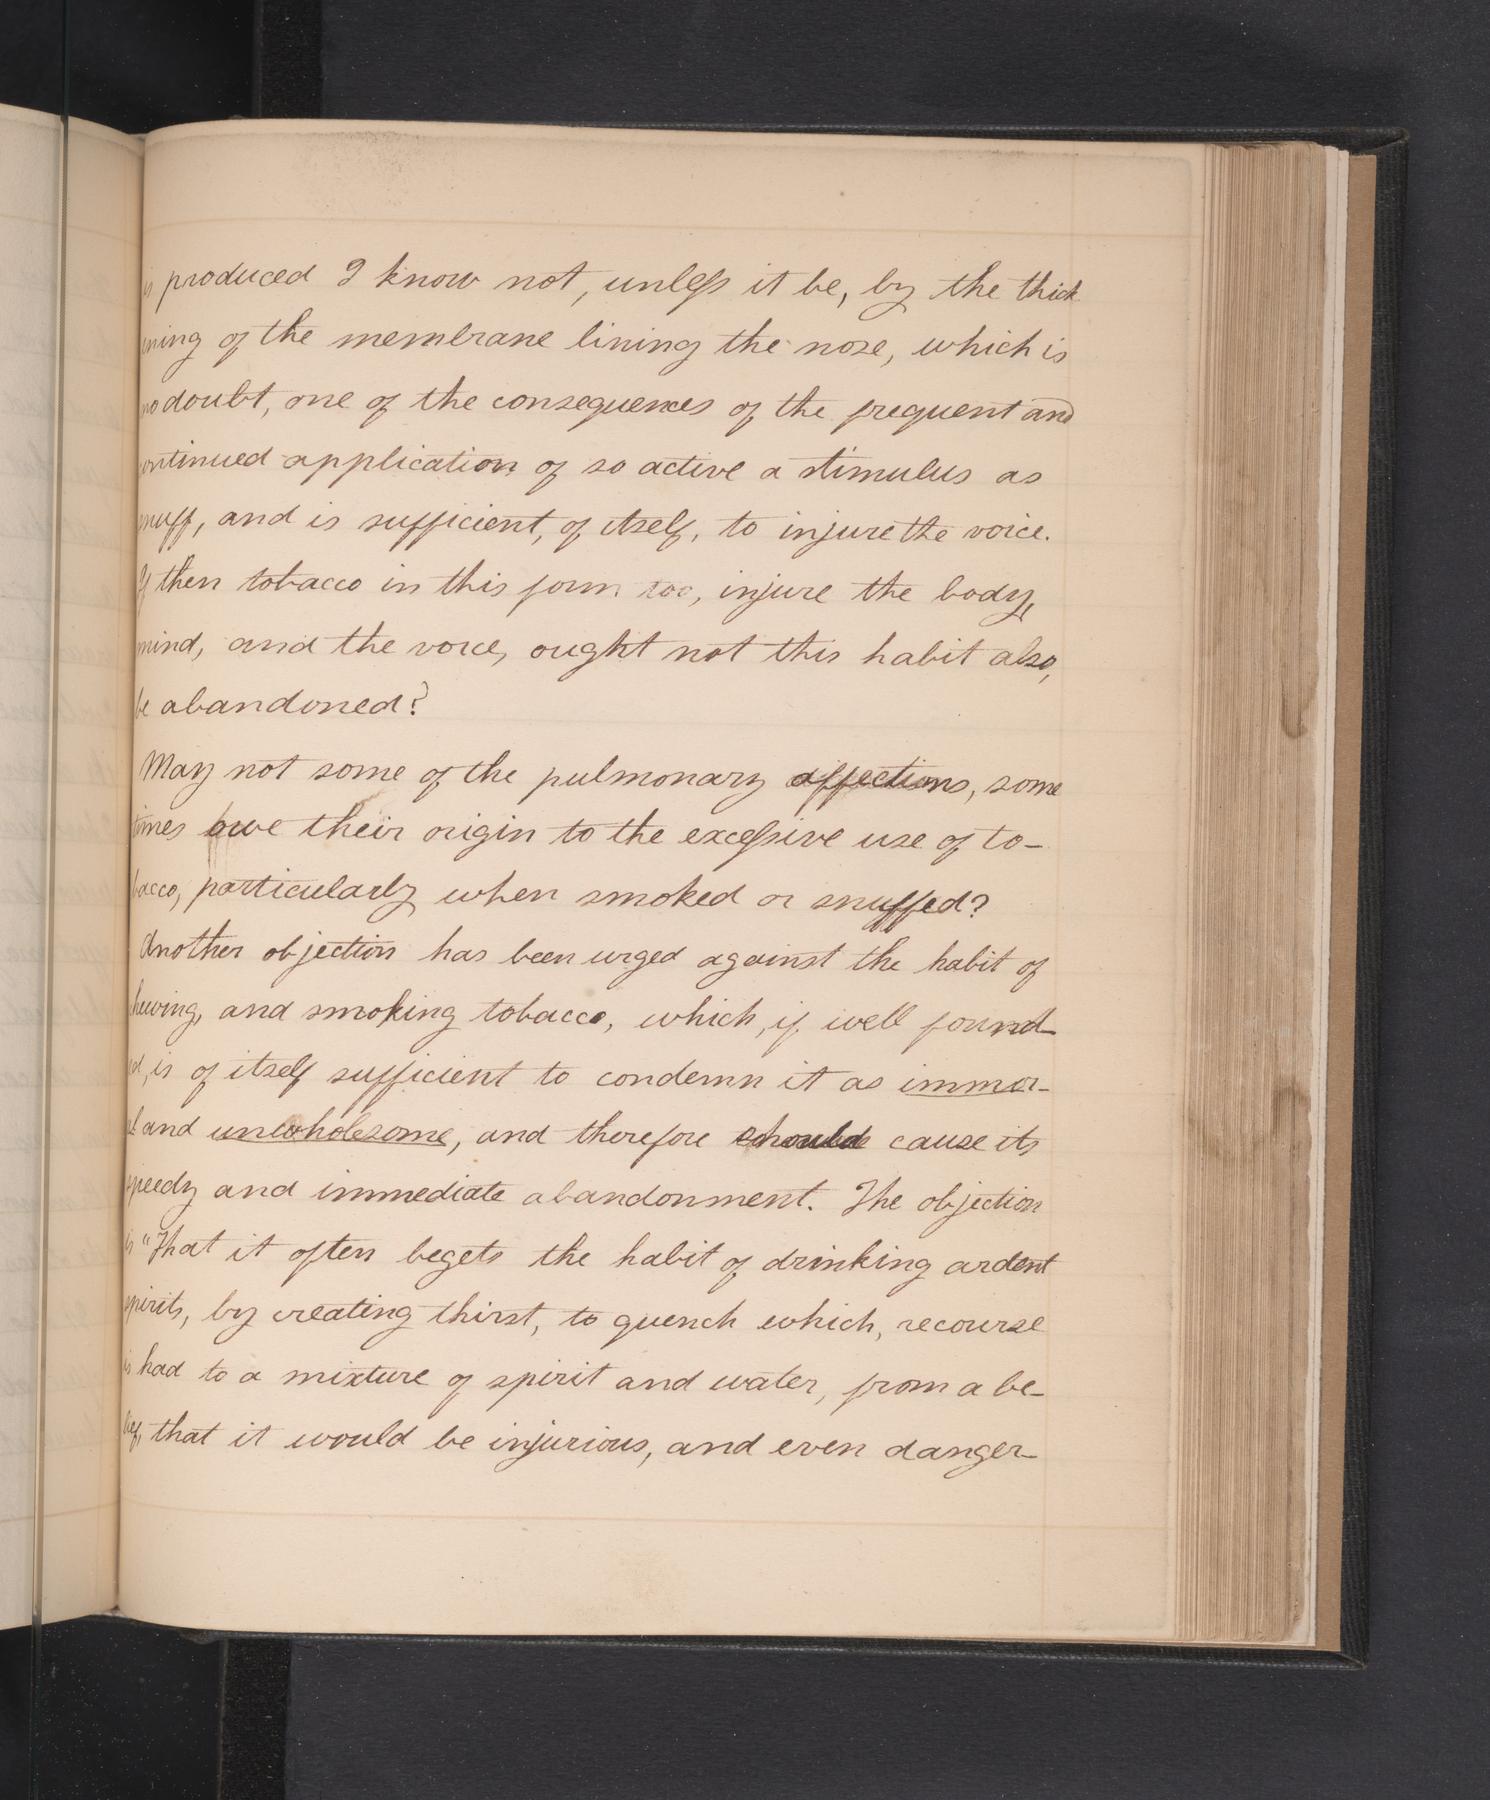 is produced I know not, unless it be, by the thick
ening of the membrane lining the nose, which is
no doubt, one of the consequences of the frequent and
continued application of so active a stimulus as
snuff, and is sufficient, of itself, to injure the voice.
If then tobacco in this form too, injure the body,
mind, and the voice, ought not this habit also,
be abandoned?
May not some of the pulmonary affections, some
times owe their origin to the excessive use of to-
bacco, particularly when smoked or snuffed?
Another objection has been urged against the habit of
chewing, and smoking tobacco, which, if well found-
ed, is of itself sufficient to condemn it as immor-
al and unwholesome, and therefore should cause its
speedy and immediate abandonment. The objection
is "That it often begets the habit of drinking ardent
spirits, by creating thirst, to quench which, recourse
is had to a mixture of spirit and water, from a be-
lief, that it would be injurious, and even danger-